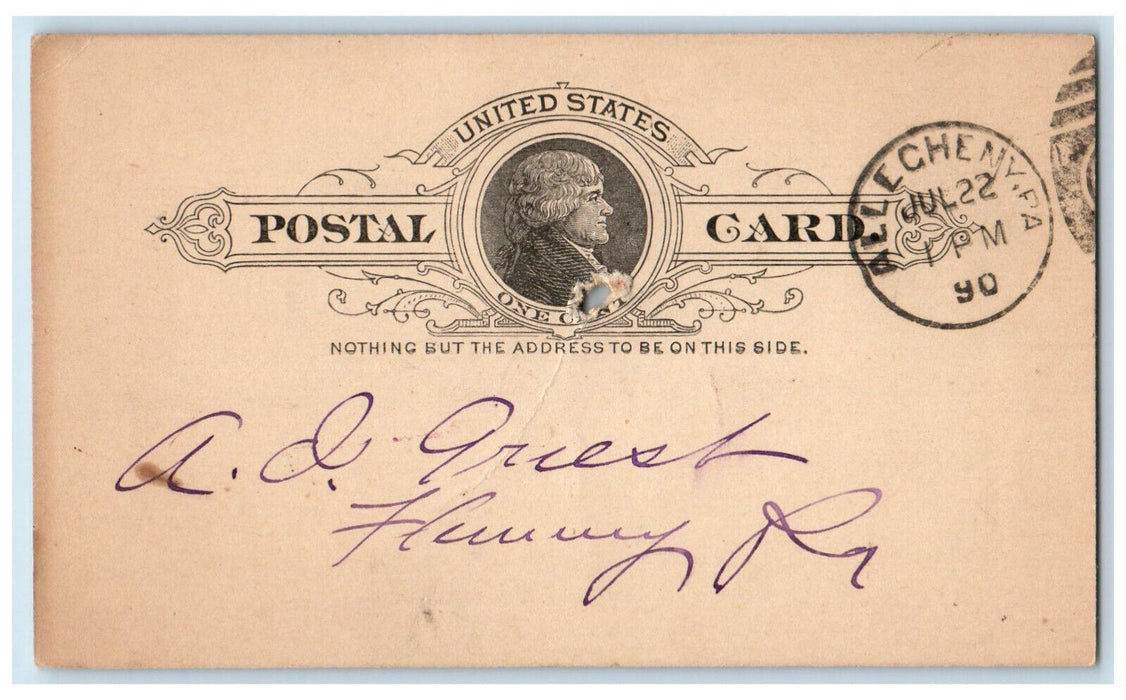 UNITED STATES
POSTAL CARD.
ONE CENT
NOTHING BUT THE ADDRESS TO BE ON THIS SIDE.
ALLEGHENY, PA
JUL 22
1 PM
90
A. I. Griest
Flemmy Pa